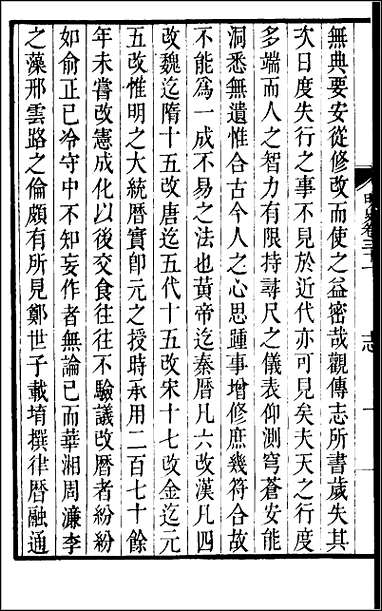 無典要安從修改而使之益密哉觀傳志所書歲失其
次日度失行之事不見於近代亦可見矣夫天之行度
多端而人之智力有限持尋尺之儀表仰測穹蒼安能
洞悉無遺惟合古今人之心思踵事增修庶幾符合故
不能為一成不易之法也黃帝迄秦曆凡六改漢凡四
改魏迄隋十五改唐迄五代十五改宋十七改金迄元
五改惟明之大統曆實卽元之授時承用二百七十餘
年未嘗改憲成化以後交食往往不驗議改曆者紛紛
如俞正己冷守中不知妄作者無論已而華湘周濂李
之藻邢雲路之倫頗有所見鄭世子載堉撰律曆融通
明史卷三十一 志 一